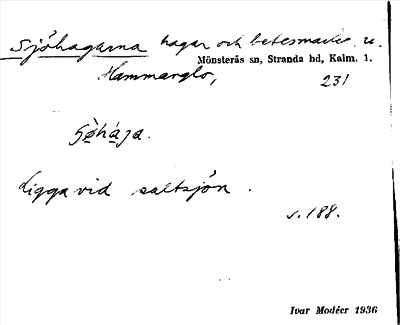 Sjöhagarna hagar och betesmarker u.
Mönsterås sn, Stranda hd, Kalm. l.
Hammarglo, 231
ligga vid saltsjön.
s. 188.
Ivar Modéer 1936